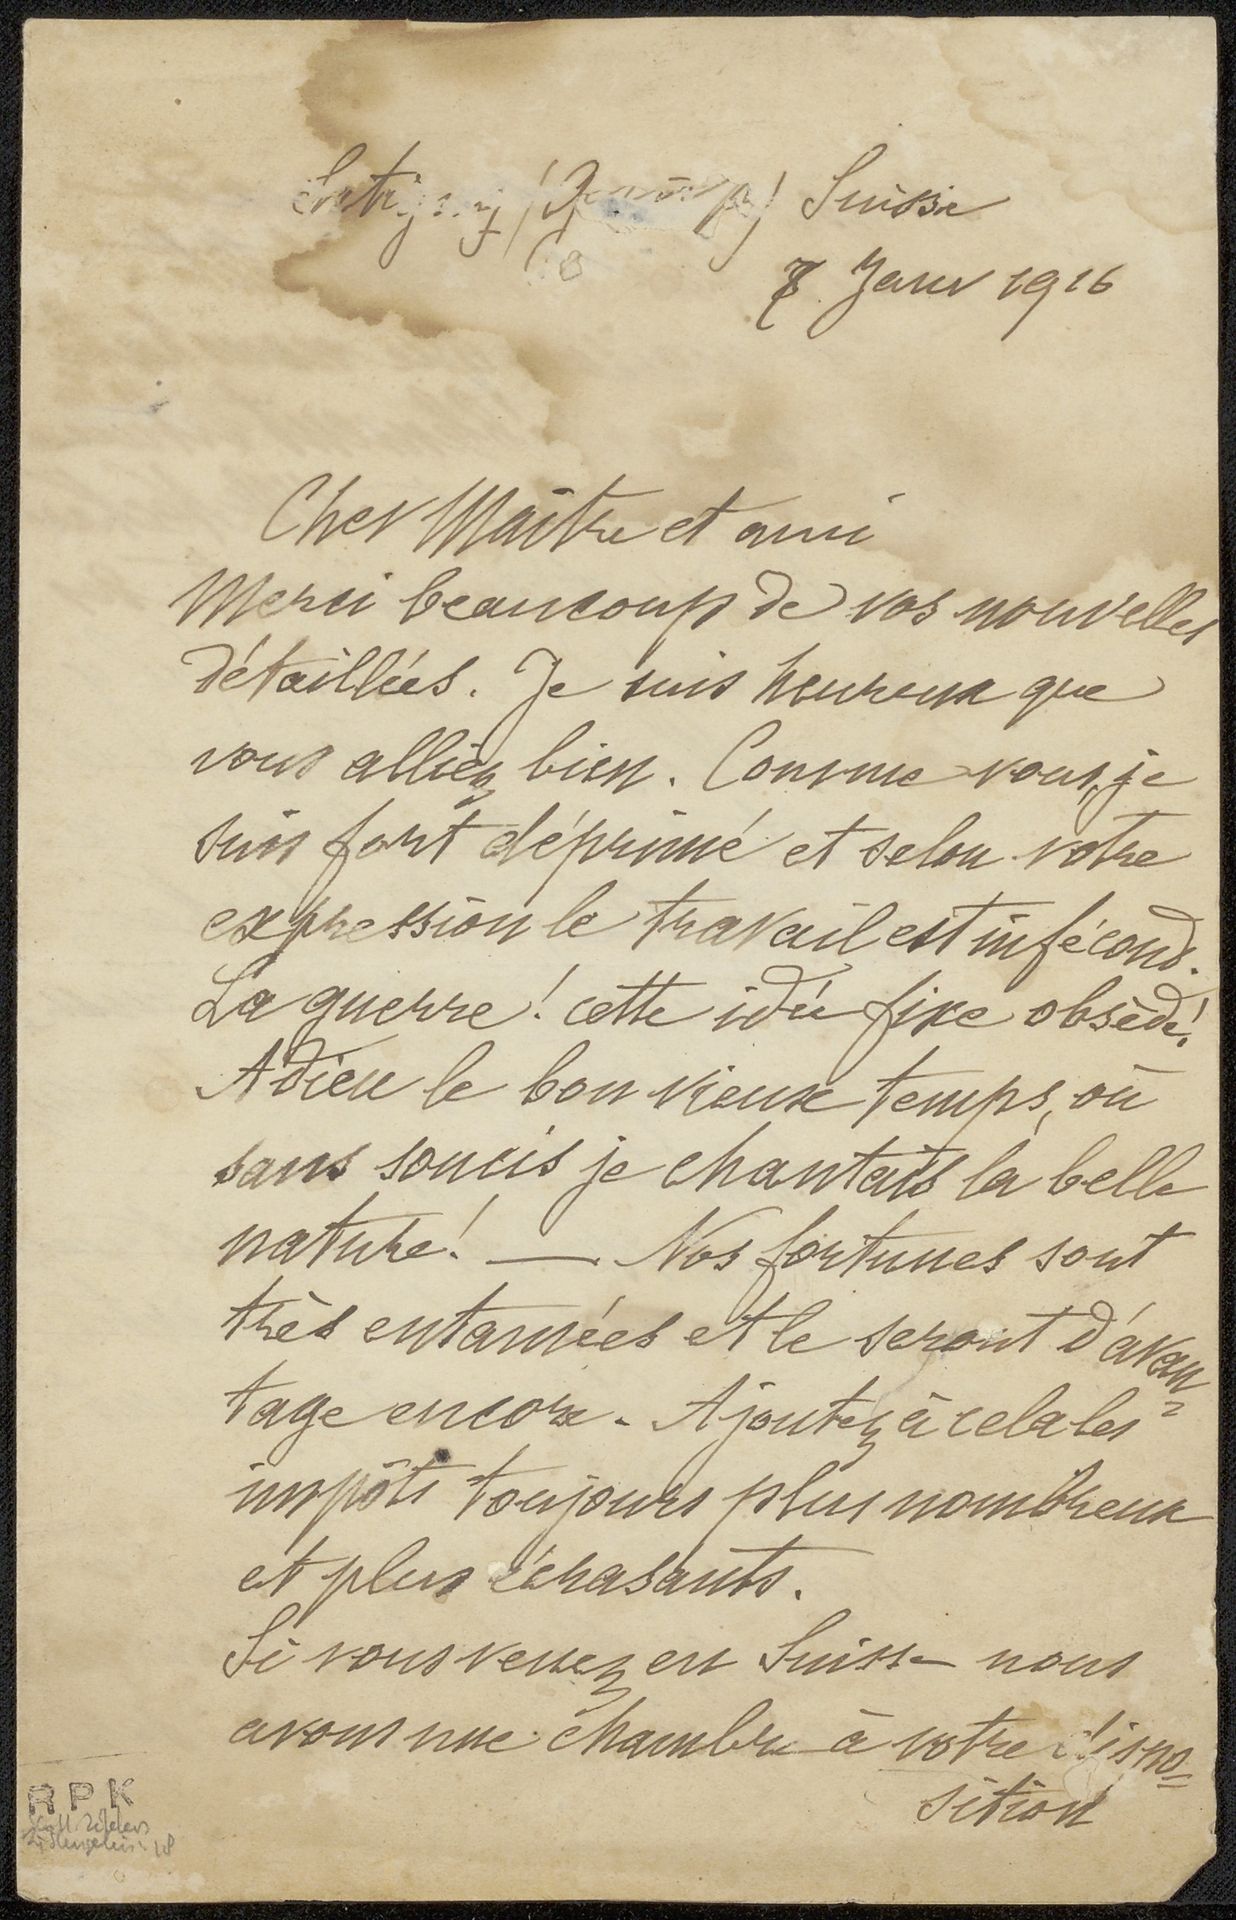 Suisse
7. Janv 1916
Cher Maître et ami
Merci beaucoup de vos nouvelles
détaillées. Je suis heureux que
vous alliez bien. Comme vous, je
suis fort déprimé et selon votre
expression le travail est infécond.
La guerre! cette idée fixe obsède!
Adieu le bon vieux temps, où
sans soucis je chantais la belle
nature! — Nos fortunes sont
très entamées et le seront d'avan=
tage encore. Ajoutez à cela les
impôts toujours plus nombreux
et plus écrasants.
Si vous venez en Suisse nous
avons une chambre à votre dispo=
sition
RPK